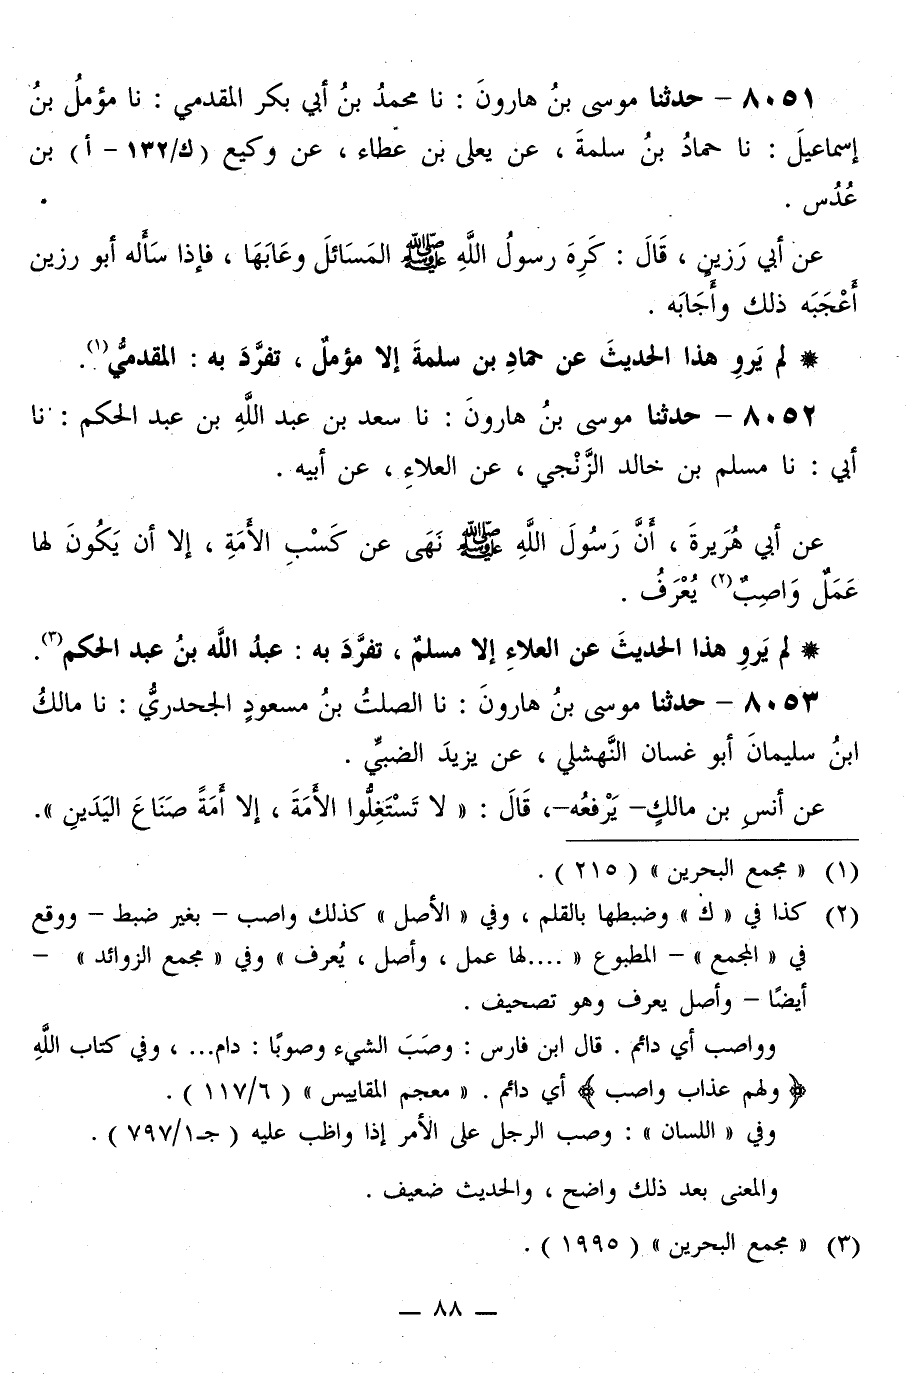 ٨٠٥١ - حدثنا موسى بنُ هارونَ : نا محمدُ بنُ أبي بكر المقدمي : نا مؤملُ بنُ
إسماعيلَ : نا حمادُ بنُ سلمةَ ، عن يعلى بن عطاء ، عن وكيع (ك/١٣٢ - أ) بن
عُدُس .
عن أبي رَزينٍ ، قَالَ : كَرِهَ رسولُ اللَّهِ ﷺ المَسَائلَ وعَابَهَا ، فإذا سَأَله أبو رزين
أَعْجَبَه ذلك وأَجَابَه .
* لم يَروِ هذا الحديثَ عن حمادِ بن سلمةَ إلا مؤملٌ ، تفرَّدَ به : المقدميُّ(١).
٨٠٥٢ - حدثنا موسى بنُ هارونَ : نا سعد بن عبد اللَّهِ بن عبد الحكم : نا
أبي : نا مسلم بن خالد الزَّنْجي ، عن العلاءِ ، عن أبيه .
عن أبي هُرَيرةَ ، أَنَّ رَسُولَ اللَّهِ ﷺ نَهَى عن كَسْبِ الأَمَةِ ، إلا أن يَكُونَ لها
عَمَلٌ وَاصِبٌ(٢) يُعْرَفُ .
* لم يَروِ هذا الحديثَ عن العلاءِ إلا مسلمٌ ، تفرَّدَ به : عبدُ اللَّه بنُ عبد الحكم(٣).
٨٠٥٣ - حدثنا موسى بنُ هارونَ : نا الصلتُ بنُ مسعودٍ الجحدريُّ : نا مالكُ
ابنُ سليمانَ أبو غسان النَّهشلي ، عن يزيدَ الضبيِّ .
عن أنسِ بن مالكٍ- يَرْفعُه-، قَالَ : « لا تَسْتَغِلُّوا الأَمَةَ ، إلا أَمَةً صَنَاعَ اليَدَينِ ».
(١) « مجمع البحرين » ( ٢١٥ ) .
(٢) كذا في « ك » وضبطها بالقلم ، وفي « الأصل » كذلك واصب - بغير ضبط - ووقع
في « المجمع » - المطبوع « ....لها عمل ، وأصل ، يُعرف » وفي « مجمع الزوائد » -
أيضًا - وأصل يعرف وهو تصحيف .
وواصب أي دائم . قال ابن فارس : وصَبَ الشيء وصوبًا : دام... ، وفي كتاب اللَّهِ
﴿ ولهم عذاب واصب ﴾ أي دائم . « معجم المقاييس » ( ٦/١١٧ ) .
وفي « اللسان » : وصب الرجل على الأمر إذا واظب عليه ( جـ١/٧٩٧ ) .
والمعنى بعد ذلك واضح ، والحديث ضعيف .
(٣) « مجمع البحرين » ( ١٩٩٥ ) .
— ٨٨ —